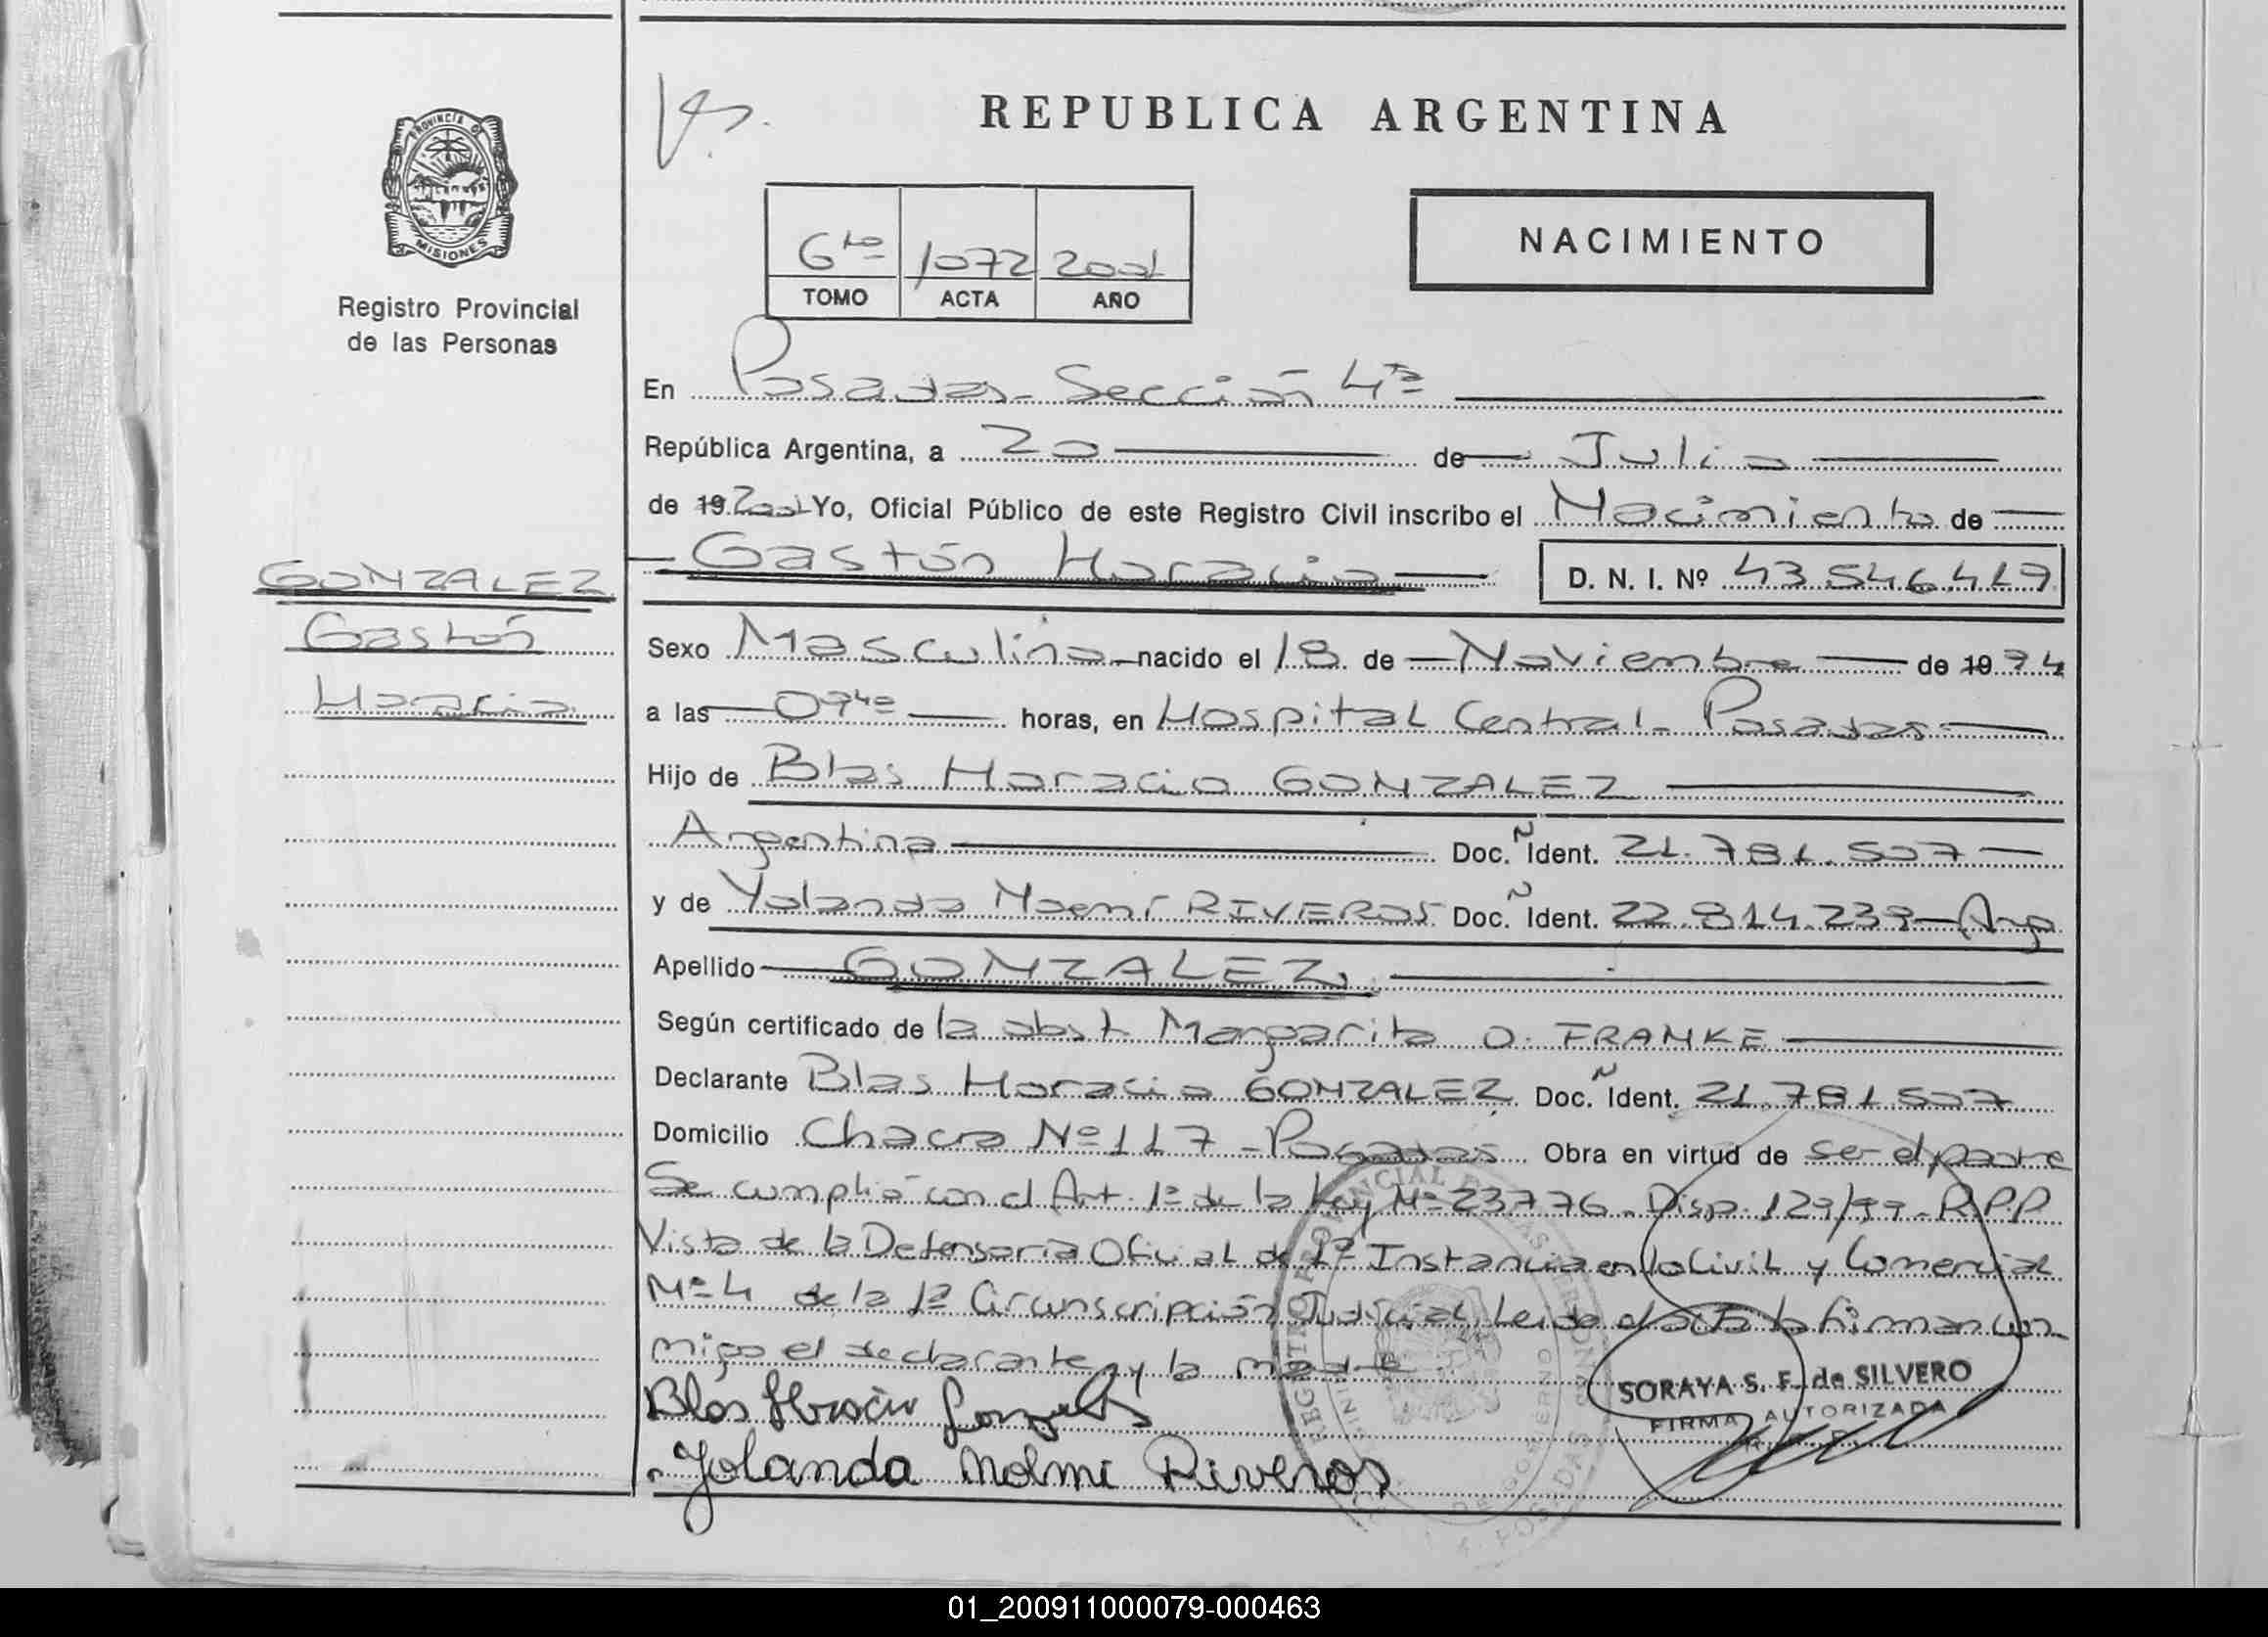 REPUBLICA ARGENTINA
PROVINCIA DE
MISIONES
Registro Provincial
de las Personas
6to 1072 2001
TOMO ACTA AÑO
NACIMIENTO
En Posadas - Sección 4ta
República Argentina, a 20 de Julio
de 19 2001 Yo, Oficial Público de este Registro Civil inscribo el Nacimiento de
Gastón Horacio D. N. I. Nº 43.546.419
GONZALEZ
Gastón
Horacio
Sexo Masculino nacido el 18 de Noviembre de 19
a las horas, en Hospital Central - Posadas
Hijo de Blas Horacio GONZALEZ
Argentina Doc. Ñ Ident. 21.781.507
y de Yolanda Noemí RIVEROS Doc. Ñ Ident. 22.814.239 - Arg
Apellido GONZALEZ
Según certificado de la obst. Margarita O. FRANKE
Declarante Blas Horacio GONZALEZ Doc. Ñ Ident. 21.781.507
Domicilio Chacra Nº 117 - Posadas Obra en virtud de ser el padre
Se cumplió con el Art. 1º de la Ley Nº 23776 - Disp. 129/99 - R.P.P
Vista de la Defensoría Oficial de 1ª Instancia en lo Civil y Comercial
Nº 4 de la 1ª Circunscripción Judicial. Leida el acta la firman con
migo el declarante y la madre.
Blas Horacio Gonzalez
Yolanda Noemi Riveros
SORAYA S. F. de SILVERO
FIRMA AUTORIZADA
REGISTRO PROVINCIAL DE LAS PERSONAS
01_200911000079-000463